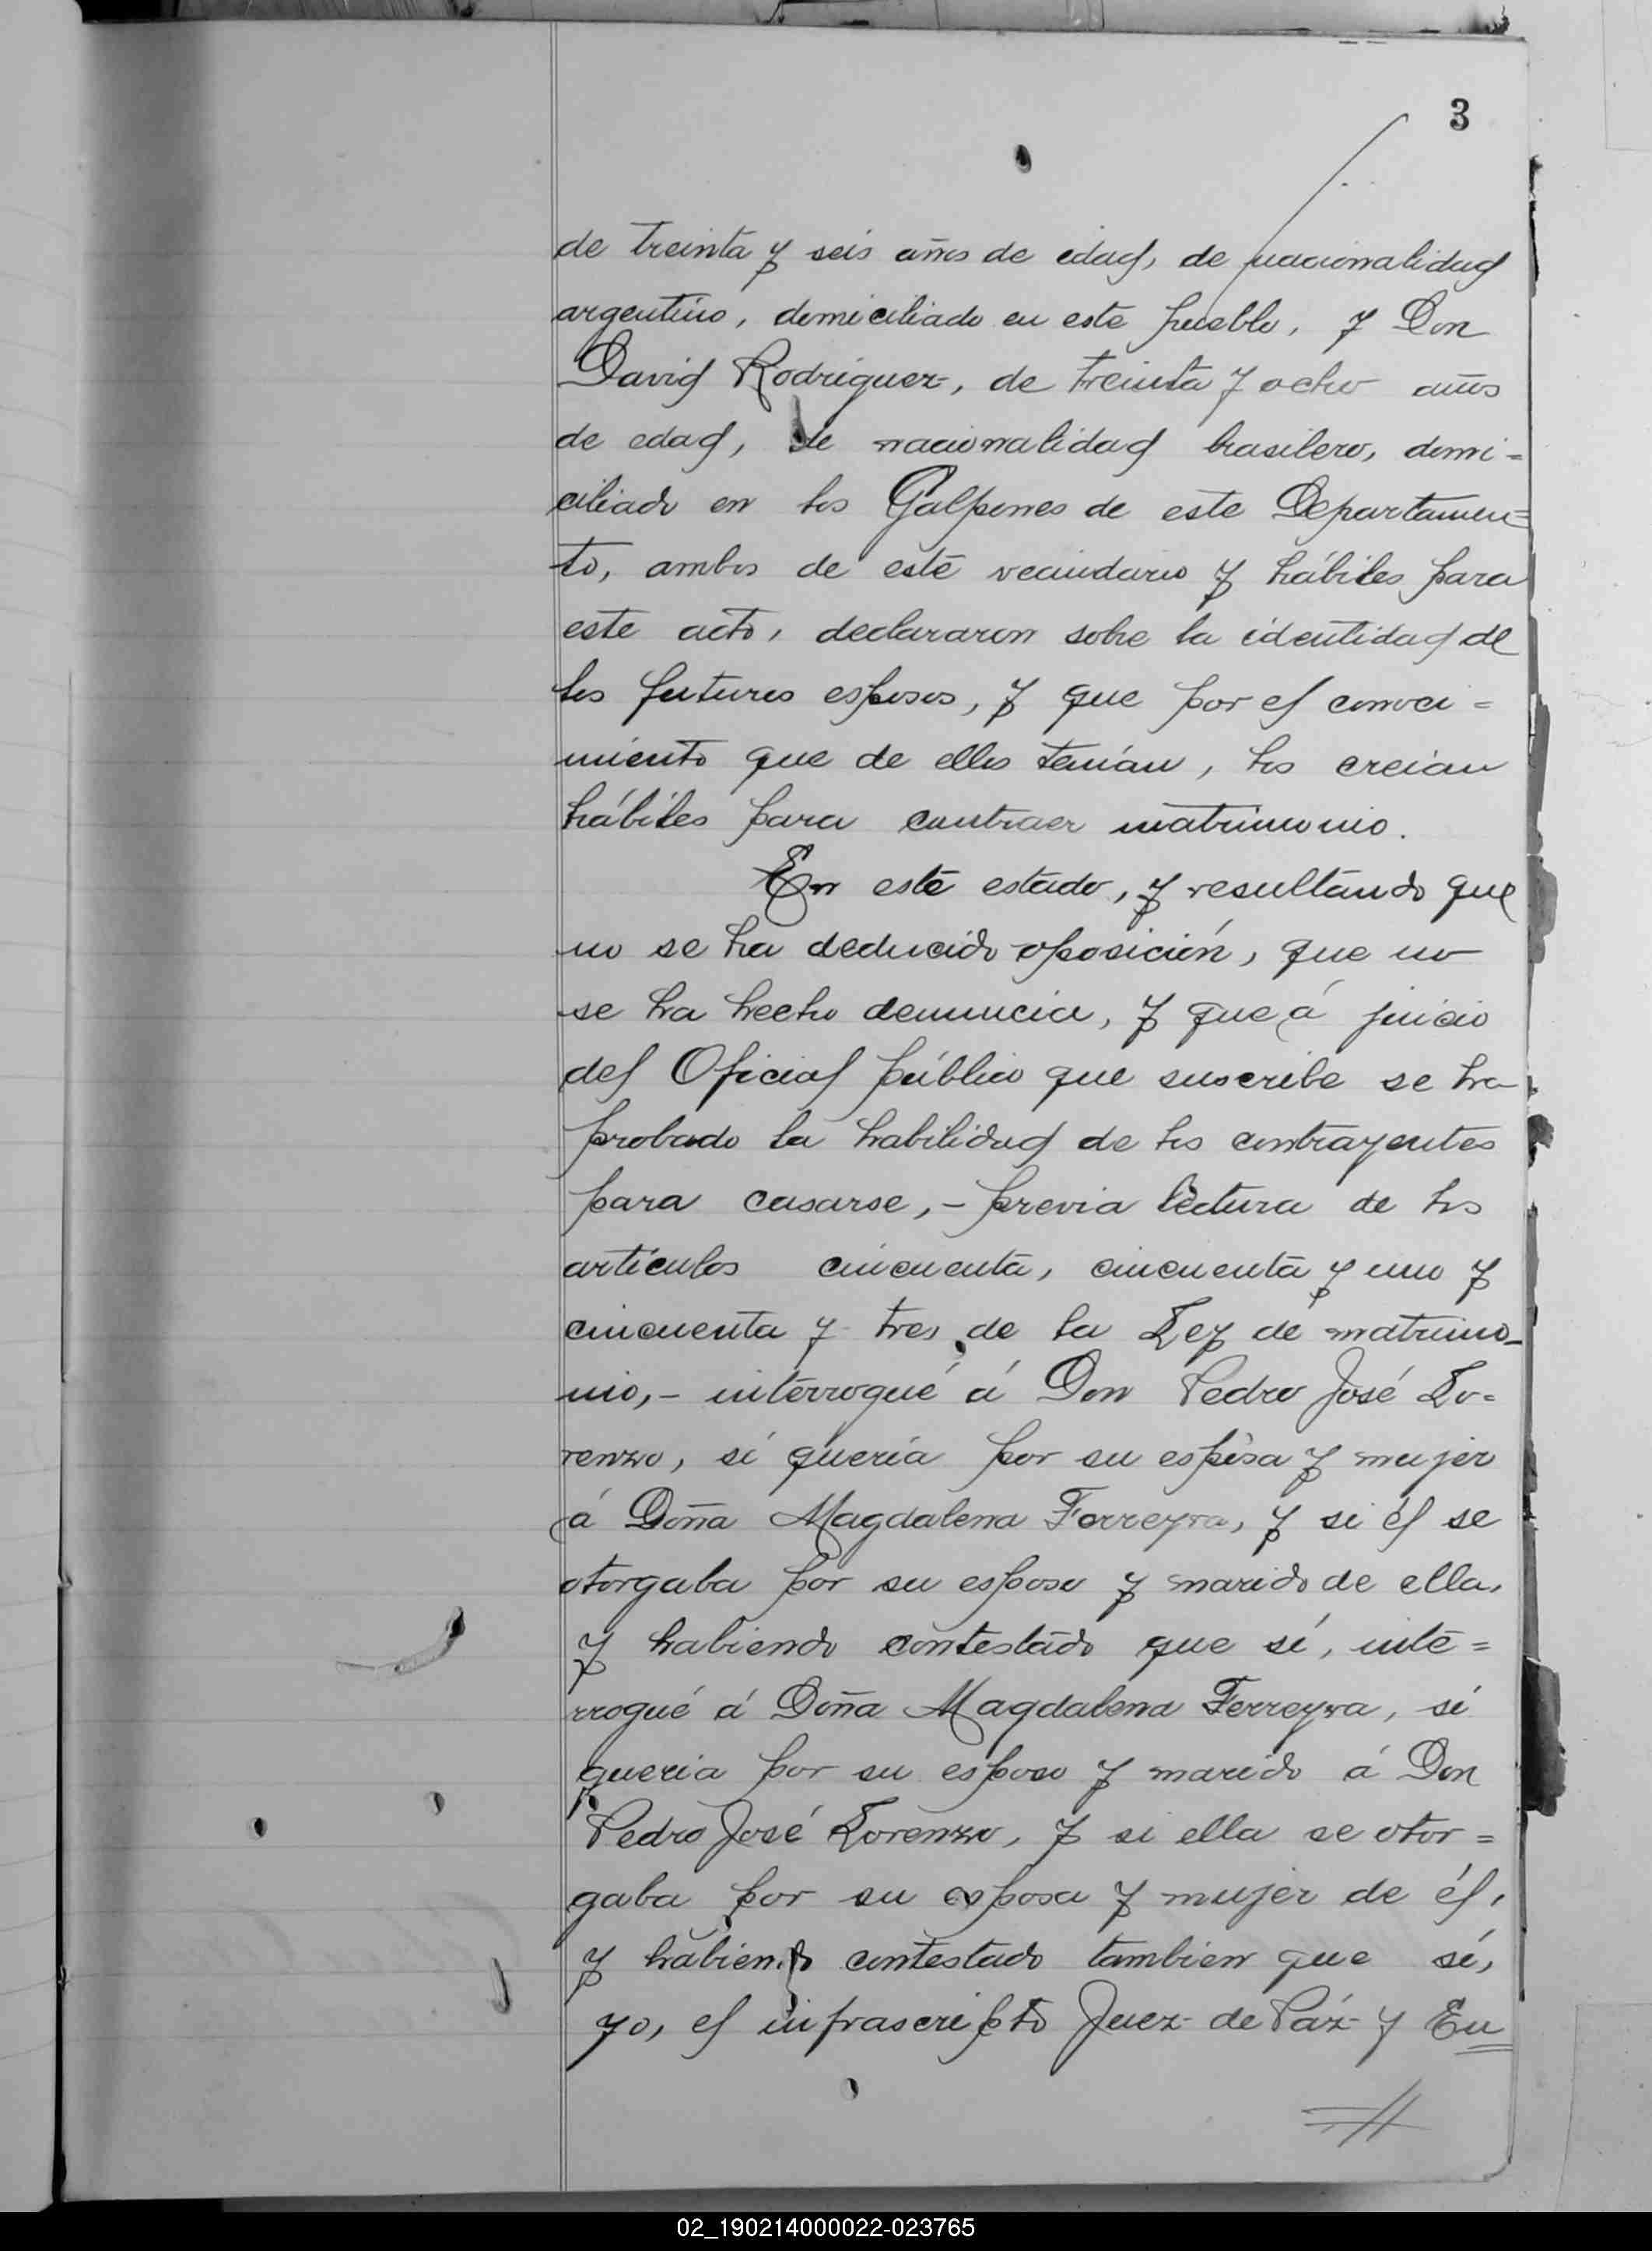 3
de treinta y seis años de edad, de nacionalidad
argentino, domiciliado en este pueblo, y Don
David Rodriguez, de treinta y ocho años
de edad, de nacionalidad brasilero, domi=
ciliado en los Galpones de este Departamen=
to, ambos de este vecindario y hábiles para
este acto, declararon sobre la identidad de
los futuros esposos, y que por el conoci=
miento que de ellos tenían, los creian
hábiles para contraer matrimonio.
En este estado, y resultando que
no se ha deducido oposición, que no
se ha hecho denuncia, y que á juicio
del Oficial público que suscribe se ha
probado la habilidad de los contrayentes
para casarse,- previa lectura de los
artículos cincuenta, cincuenta y uno y
cincuenta y tres de la Ley de matrimo-
nio,- interrogué á Don Pedro José Lo=
renzo, si quería por su esposa y mujer
á Doña Magdalena Ferreyra, y si él se
otorgaba por su esposo y marido de ella,
y habiendo contestado que sí, inte=
rrogué á Doña Magdalena Ferreyra, si
queria por su esposo y marido á Don
Pedro José Lorenzo, y si ella se otor=
gaba por su esposa y mujer de él,
y habiendo contestado tambien que sí,
yo, el infrascripto Juez de Páz y En
02_190214000022-023765